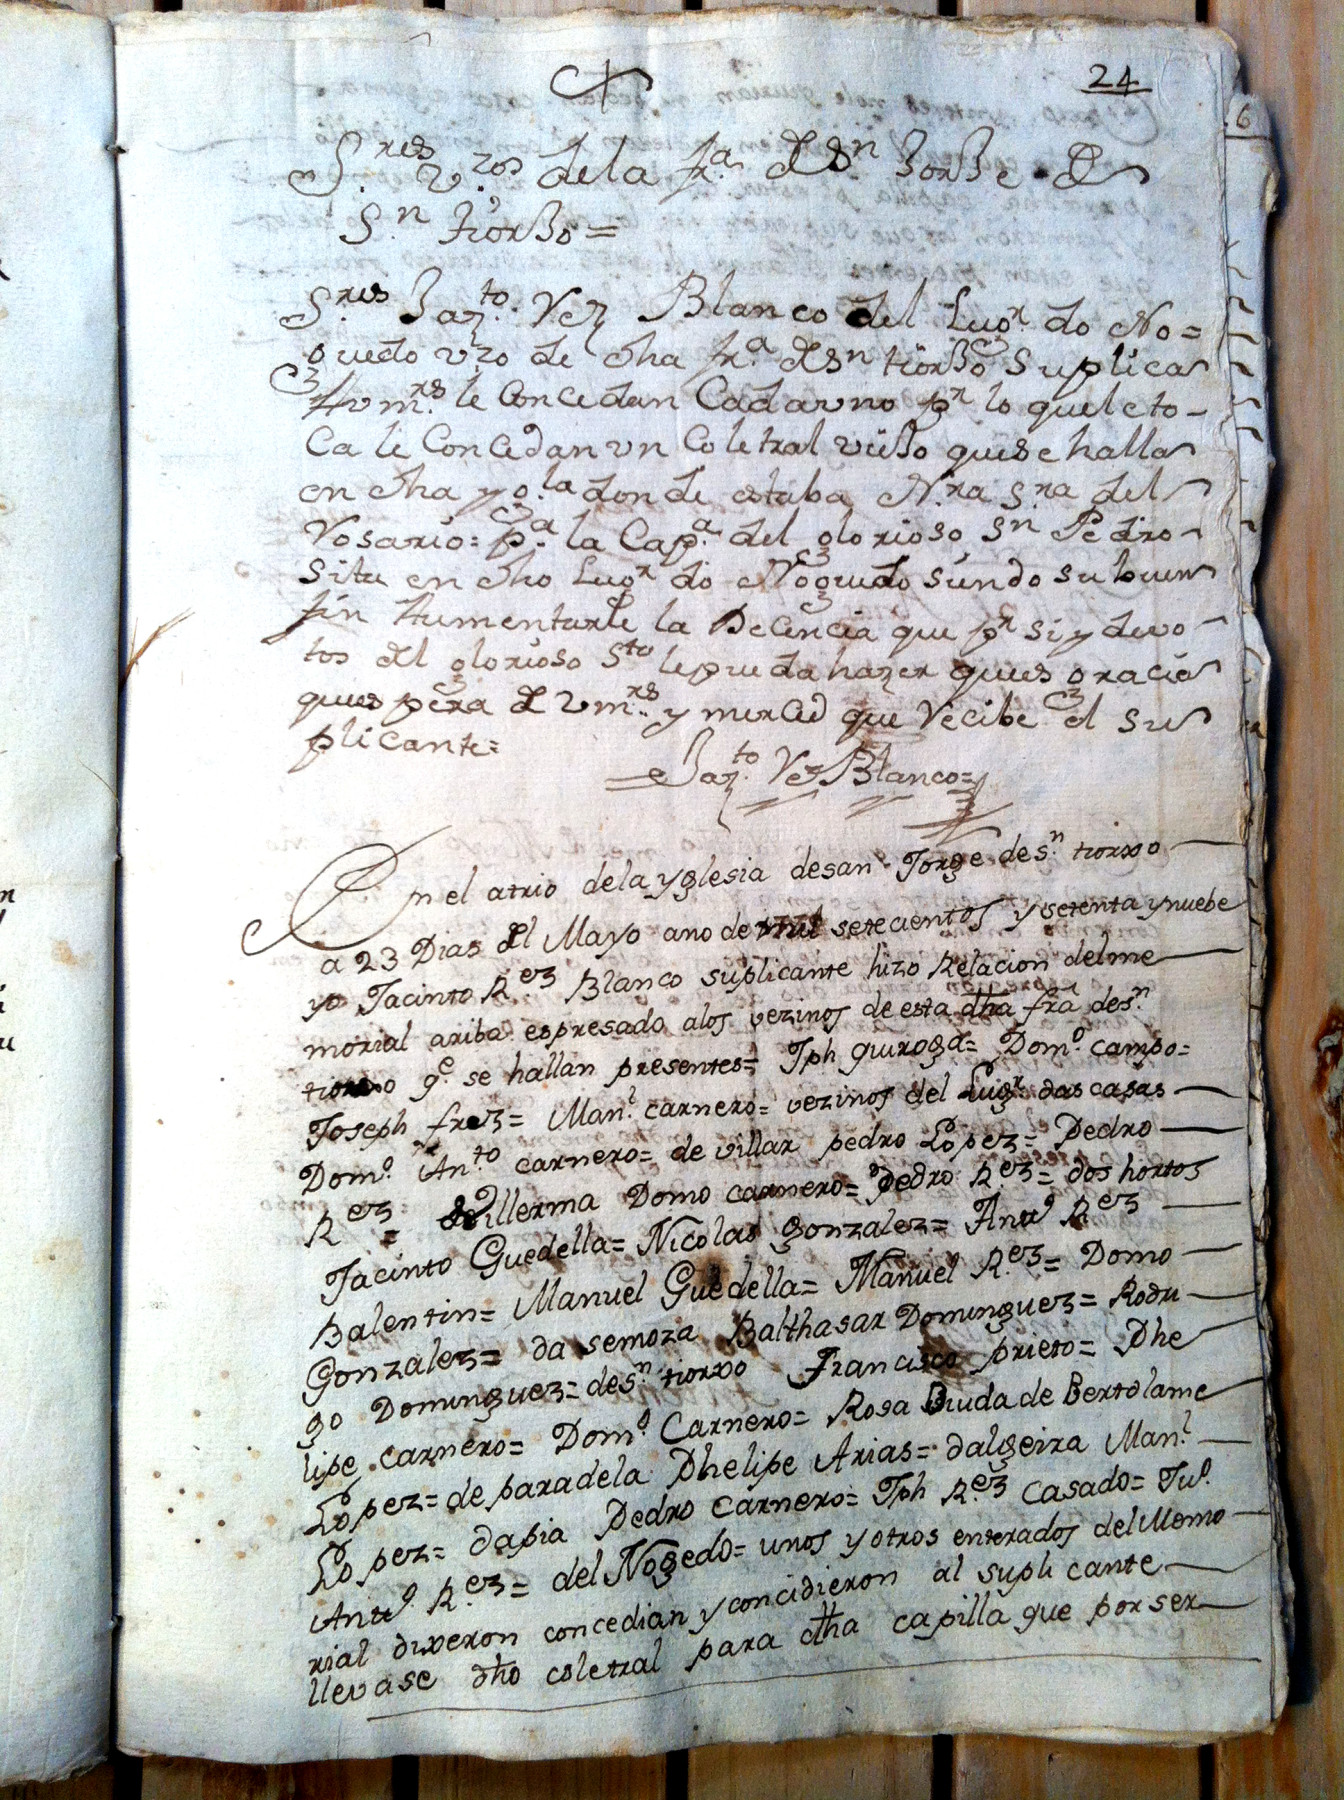 24
S.res v.zos de la fr.a d S.n Jorje D
S.n tiorjo =
S.res Jaz.to Vez Blanco del Lug.r do No=
guedo vzo de dha fr.a d Sn tiorjo Suplica
A vm.rs le Concedan Cada vno pr lo que le to-
Ca le Concedan vn Coletral viejo que se halla
en dha yg.la donde estaba Nra Sra del
Rosario = p.a la Cap.a del glorioso Sn Pedro
Situ en dho Lug.r do Noguedo siendo su buen
fin Aumentarle la Decencia que pr si y devo-
tos del glorioso S.to le pueda hazer que es gracia
que espera d vm.rs y merced que Recibe el Su
plicante=
Jaz.to Vez Blanco=
En el atrio dela yglesia desan Jorge des.n tiorxo
a 23 Dias del Mayo ano de mil setecientos y setenta y nuebe
yo Jacinto R.ez Blanco suplicante hizo Relacion delme
morial ariba espresado alos vezinos de esta dha fra des.n
tiorxo q.e se hallan presentes= Jph quiroga= Dom.o campo=
Joseph frez= Man.l carnero= vezinos del Lug.r das casas
Dom.o An.to carnero= de villar pedro Lopez= Pedro
R.ez = Domo carnero= Pedro R.ez= dos hortos
Jacinto Guedella= Nicolas gonzalez= Ant.o R.ez
Balentin= Manuel Guedella= Manuel R.ez= Domo
Gonzalez= da semoza Balthasar Dominguez= Rodri
go Dominguez= des.n tiorxo Francisco prieto= Phe
lipe carnero= Dom.o Carnero= Rosa Biuda de Bertolame
Lopez= de paradela Phelipe Arias= dalgeira Man.l
Lopez= dapia Pedro Carnero= Jph R.ez Casado= Ju.o
Ant.o R.ez= del Nogedo= unos y otros enterados del Memo
rial dixeron concedian y concidieron al suplicante
llevase dho coletral para dha capilla que por ser